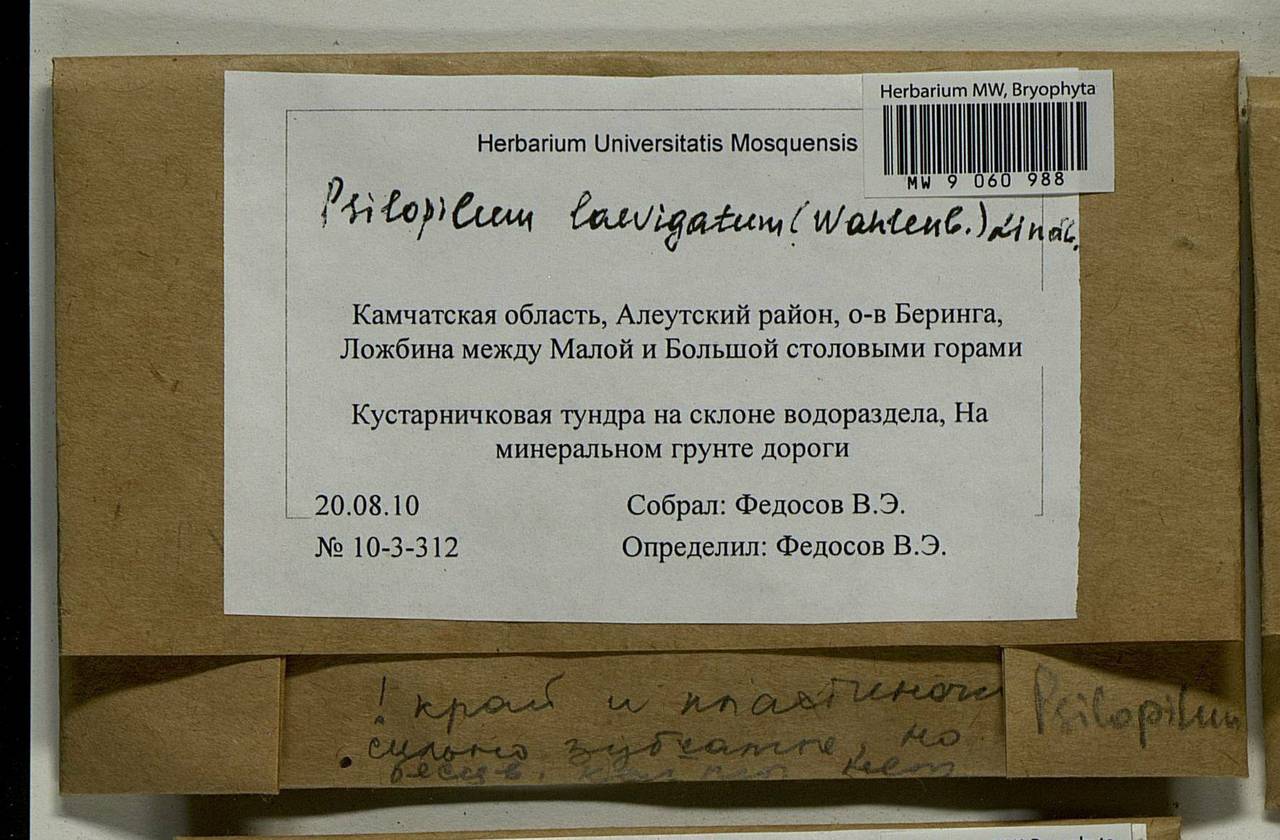 Herbarium MW, Bryophyta
MW 9 060 988
Herbarium Universitatis Mosquensis
Psilopilum laevigatum (Wahlenb.) Lindb.
Камчатская область, Алеутский район, о-в Беринга,
Ложбина между Малой и Большой столовыми горами
Кустарничковая тундра на склоне водораздела, На
минеральном грунте дороги
20.08.10 Собрал: Федосов В.Э.
№ 10-3-312 Определил: Федосов В.Э.
! край и пластиночки
сильно зубчатые, но
бесцв. нет
Psilopilum